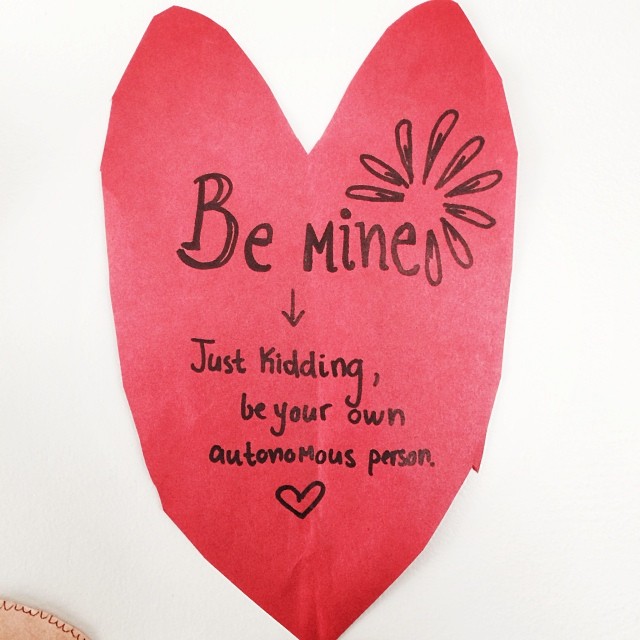 Be Mine
Just Kidding,
be your own
autonomous person.